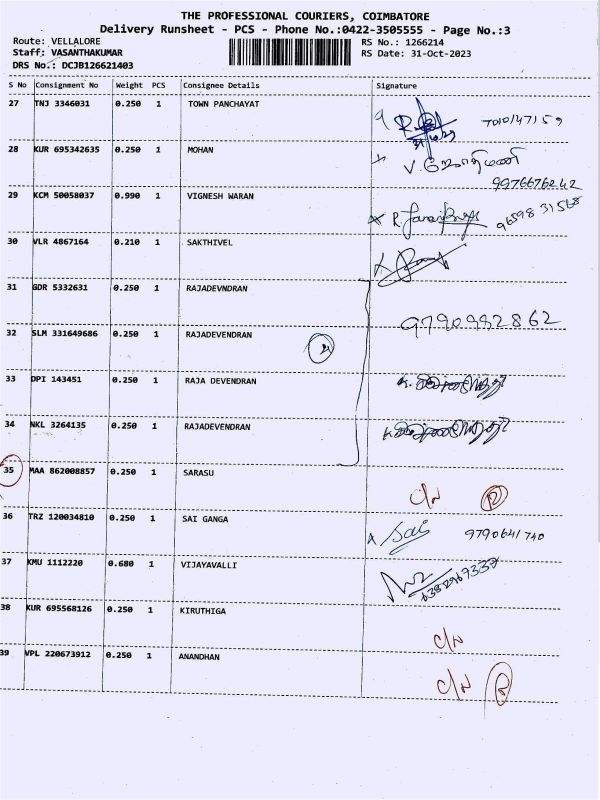 THE PROFESSIONAL COURIERS, COIMBATORE
Delivery Runsheet - PCS - Phone No.:0422-3505555 - Page No.:3
Route: VELLALORE
RS No.: 1266214
Staff: VASANTHAKUMAR
RS Date: 31-Oct-2023
DRS No.: DCJB126621403
S No Consignment No Weight PCS Consignee Details Signature
27 TNJ 3346031 0.250 1 TOWN PANCHAYAT
28 KUR 695342635 0.250 1 MOHAN
9976676242
29 KCM 50058037 0.990 1 VIGNESH WARAN
96598 31568
30 VLR 4867164 0.210 1 SAKTHIVEL
31 GDR 5332631 0.250 1 RAJADEVNDRAN
9790992862
32 SLM 331649686 0.250 1 RAJADEVENDRAN
33 DPI 143451 0.250 1 RAJA DEVENDRAN
34 NKL 3264135 0.250 1 RAJADEVENDRAN
35 MAA 862008857 0.250 1 SARASU
C/N
36 TRZ 120034810 0.250 1 SAI GANGA Sai 9790641740
37 KMU 1112220 0.680 1 VIJAYAVALLI
38 KUR 695568126 0.250 1 KIRUTHIGA
C/N
39 VPL 220673912 0.250 1 ANANDHAN
C/N